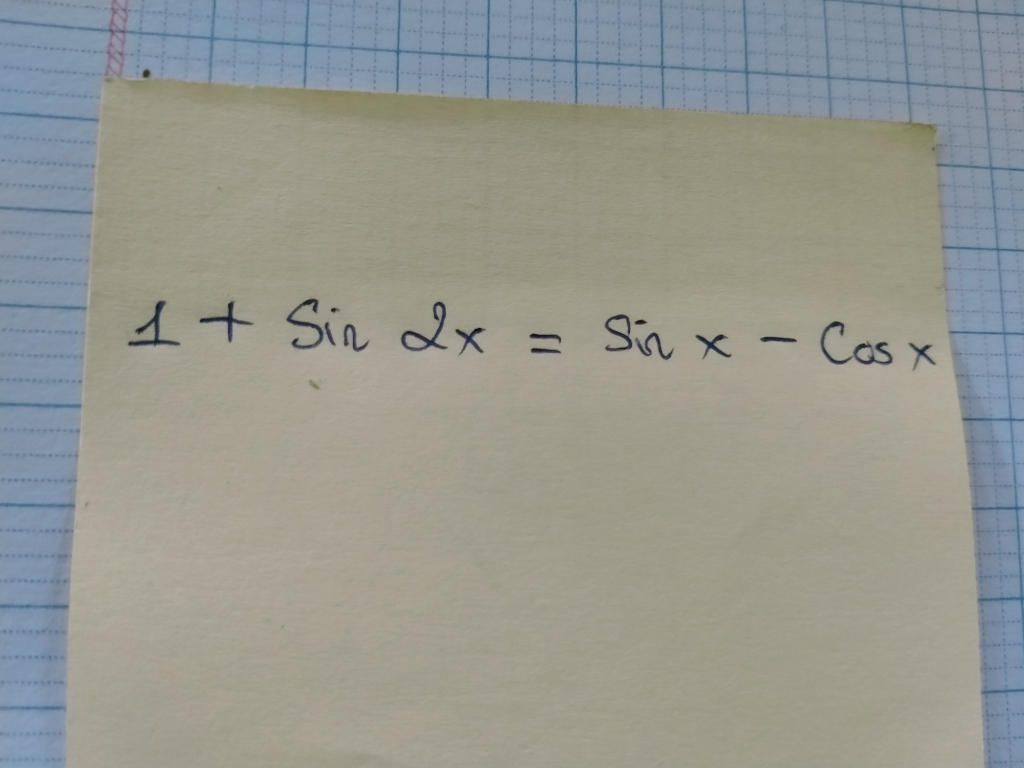 1 + Sin 2x = Sin x - Cos x